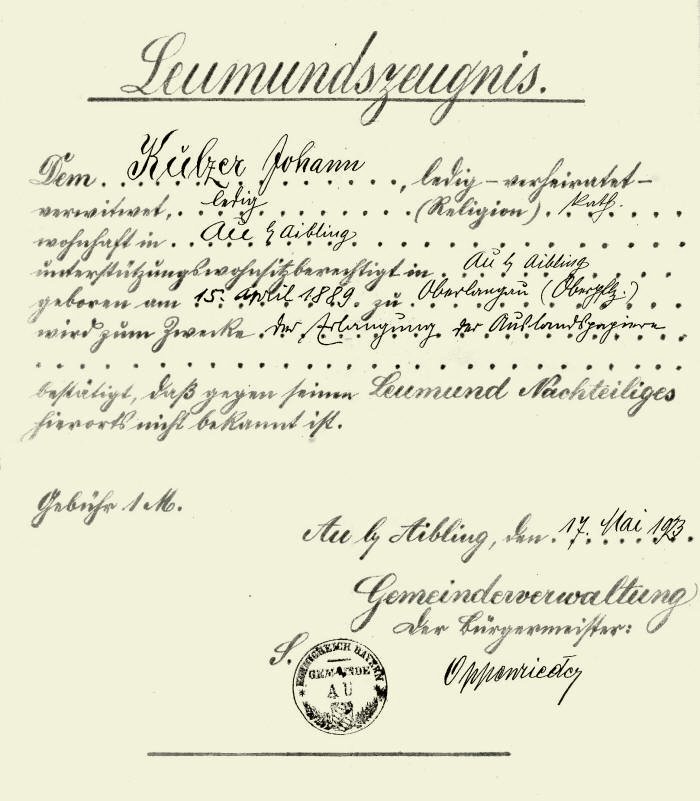 Leumundszeugnis.
Dem . Kulzer Johann . . , ledig – verheiratet –
verwitwet, . ledig . . . (Religion) . kath. . . .
wohnhaft in . . Au b/ Aibling . . .
unterstützungswohnsitzberechtigt in . Au b/ Aibling . .
geboren am 15. April 1889. zu Oberlangau (Oberpflz.)
wird zum Zwecke der Erlangung der Auslandspapiere
bestätigt, daß gegen seinen Leumund Nachteiliges
hierorts nicht bekannt ist.
Gebühr 1 M.
Au b/ Aibling, den . 17. Mai 1923.
Gemeindeverwaltung
Der Bürgermeister:
S.
KOENIGREICH BAYERN
GEMEINDE
AU